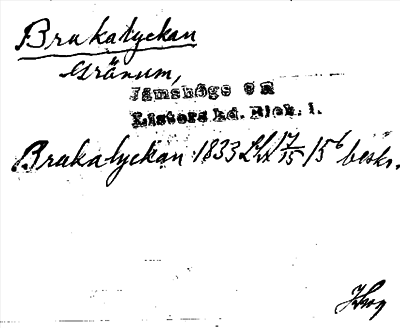 Brukatyckan
Gränum,
Jämshögs sn
Listers hd. Blek. l.
Brukalyckan 1833 Lhx 17/15 15⁶ beskr.